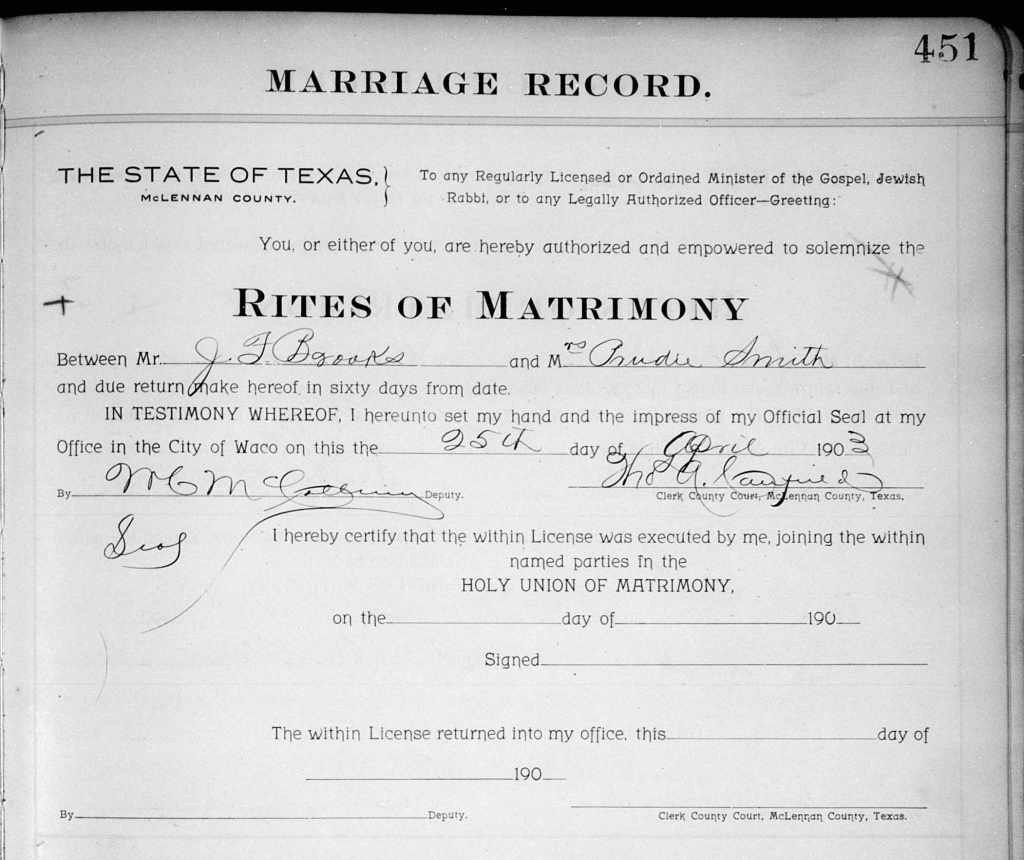 451
MARRIAGE RECORD.
THE STATE OF TEXAS, To any Regularly Licensed or Ordained Minister of the Gospel, Jewish
McLENNAN COUNTY. Rabbi, or to any Legally Authorized Officer—Greeting:
You, or either of you, are hereby authorized and empowered to solemnize the
RITES OF MATRIMONY
Between Mr. J. F. Brooks and Mrs Prudie Smith
and due return make hereof in sixty days from date.
IN TESTIMONY WHEREOF, I hereunto set my hand and the impress of my Official Seal at my
Office in the City of Waco on this the 25th day of April 1903
By Deputy. Clerk County Court, McLennan County, Texas.
Seal
I hereby certify that the within License was executed by me, joining the within
named parties in the
HOLY UNION OF MATRIMONY,
on the day of 190
Signed
The within License returned into my office, this day of
190
By Deputy. Clerk County Court, McLennan County, Texas.